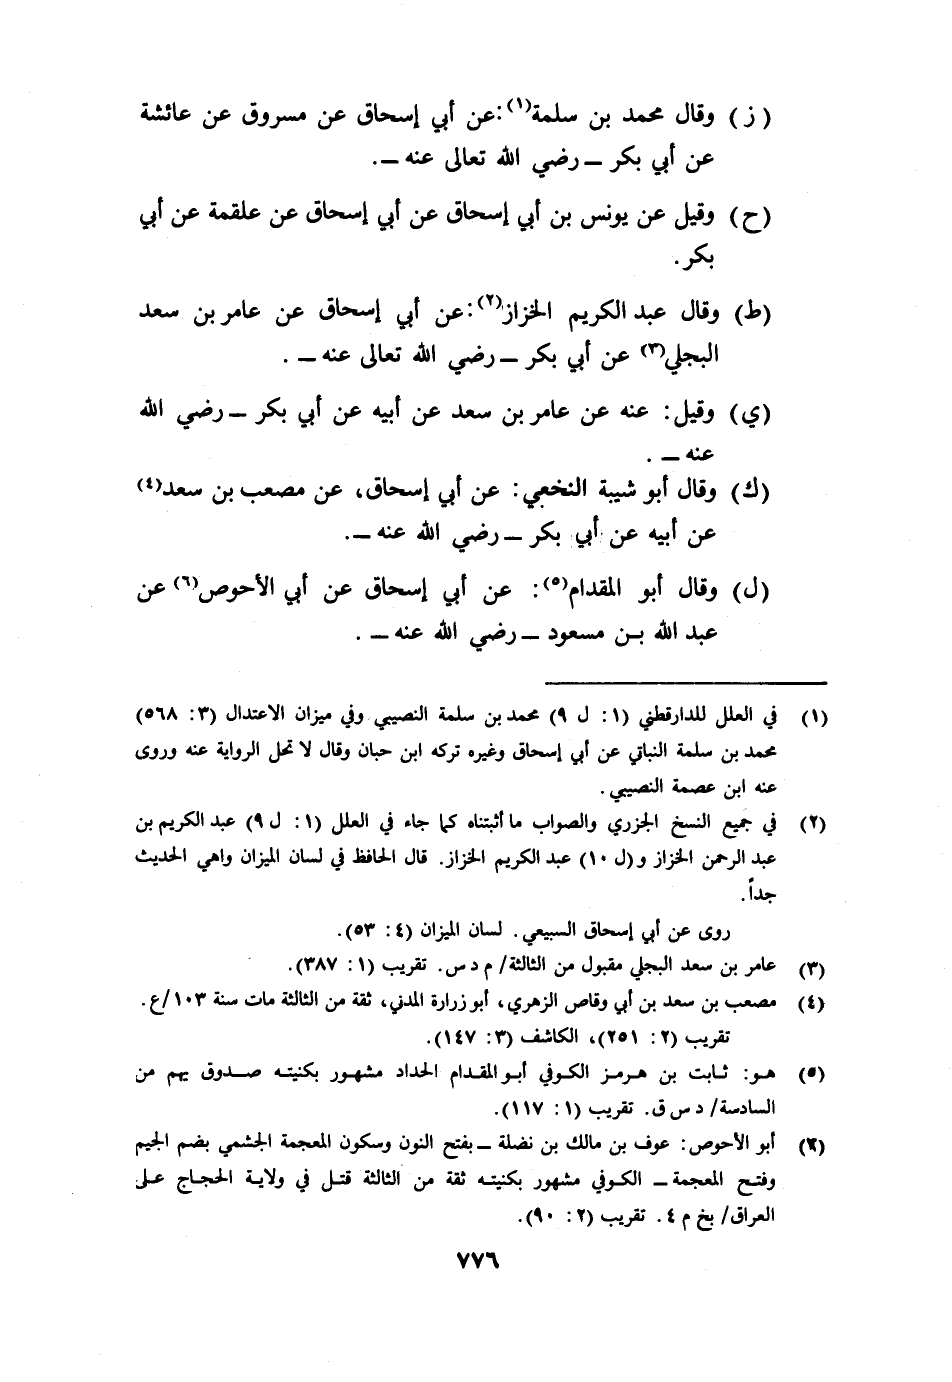 (ز) وقال محمد بن سلمة(١): عن أبي إسحاق عن مسروق عن عائشة
عن أبي بكر ــ رضي الله تعالى عنه ــ.
(ح) وقيل عن يونس بن أبي إسحاق عن أبي إسحاق عن علقمة عن أبي
بكر.
(ط) وقال عبد الكريم الخزاز(٢): عن أبي إسحاق عن عامر بن سعد
البجلي(٣) عن أبي بكر ــ رضي الله تعالى عنه ــ .
(ي) وقيل: عنه عن عامر بن سعد عن أبيه عن أبي بكر ــ رضي الله
عنه ــ .
(ك) وقال أبو شيبة النخعي: عن أبي إسحاق، عن مصعب بن سعد(٤)
عن أبيه عن أبي بكر ــ رضي الله عنه ــ.
(ل) وقال أبو المقدام(٥): عن أبي إسحاق عن أبي الأحوص(٦) عن
عبد الله بن مسعود ــ رضي الله عنه ــ .
(١) في العلل للدارقطني (١: ل ٩) محمد بن سلمة النصيبي وفي ميزان الاعتدال (٣: ٥٦٨)
محمد بن سلمة النباتي عن أبي إسحاق وغيره تركه ابن حبان وقال لا تحل الرواية عنه وروى
عنه ابن عصمة النصيبي.
(٢) في جميع النسخ الجزري والصواب ما أثبتناه كما جاء في العلل (١: ل ٩) عبد الكريم بن
عبد الرحمن الخزاز و(ل ١٠) عبد الكريم الخزاز. قال الحافظ في لسان الميزان واهي الحديث
جداً.
روى عن أبي إسحاق السبيعي. لسان الميزان (٤: ٥٣).
(٣) عامر بن سعد البجلي مقبول من الثالثة/ م د س. تقريب (١: ٣٨٧).
(٤) مصعب بن سعد بن أبي وقاص الزهري، أبو زرارة المدني، ثقة من الثالثة مات سنة ١٠٣/ع.
تقريب (٢: ٢٥١)، الكاشف (٣: ١٤٧).
(٥) هو: ثابت بن هرمز الكوفي أبو المقدام الحداد مشهور بكنيته صدوق يهم من
السادسة/ د س ق. تقريب (١: ١١٧).
(٦) أبو الأحوص: عوف بن مالك بن نضلة ــ بفتح النون وسكون المعجمة الجشمي بضم الجيم
وفتح المعجمة ــ الكوفي مشهور بكنيته ثقة من الثالثة قتل في ولاية الحجاج على
العراق/ بخ م ٤. تقريب (٢: ٩٠).
٧٧٦